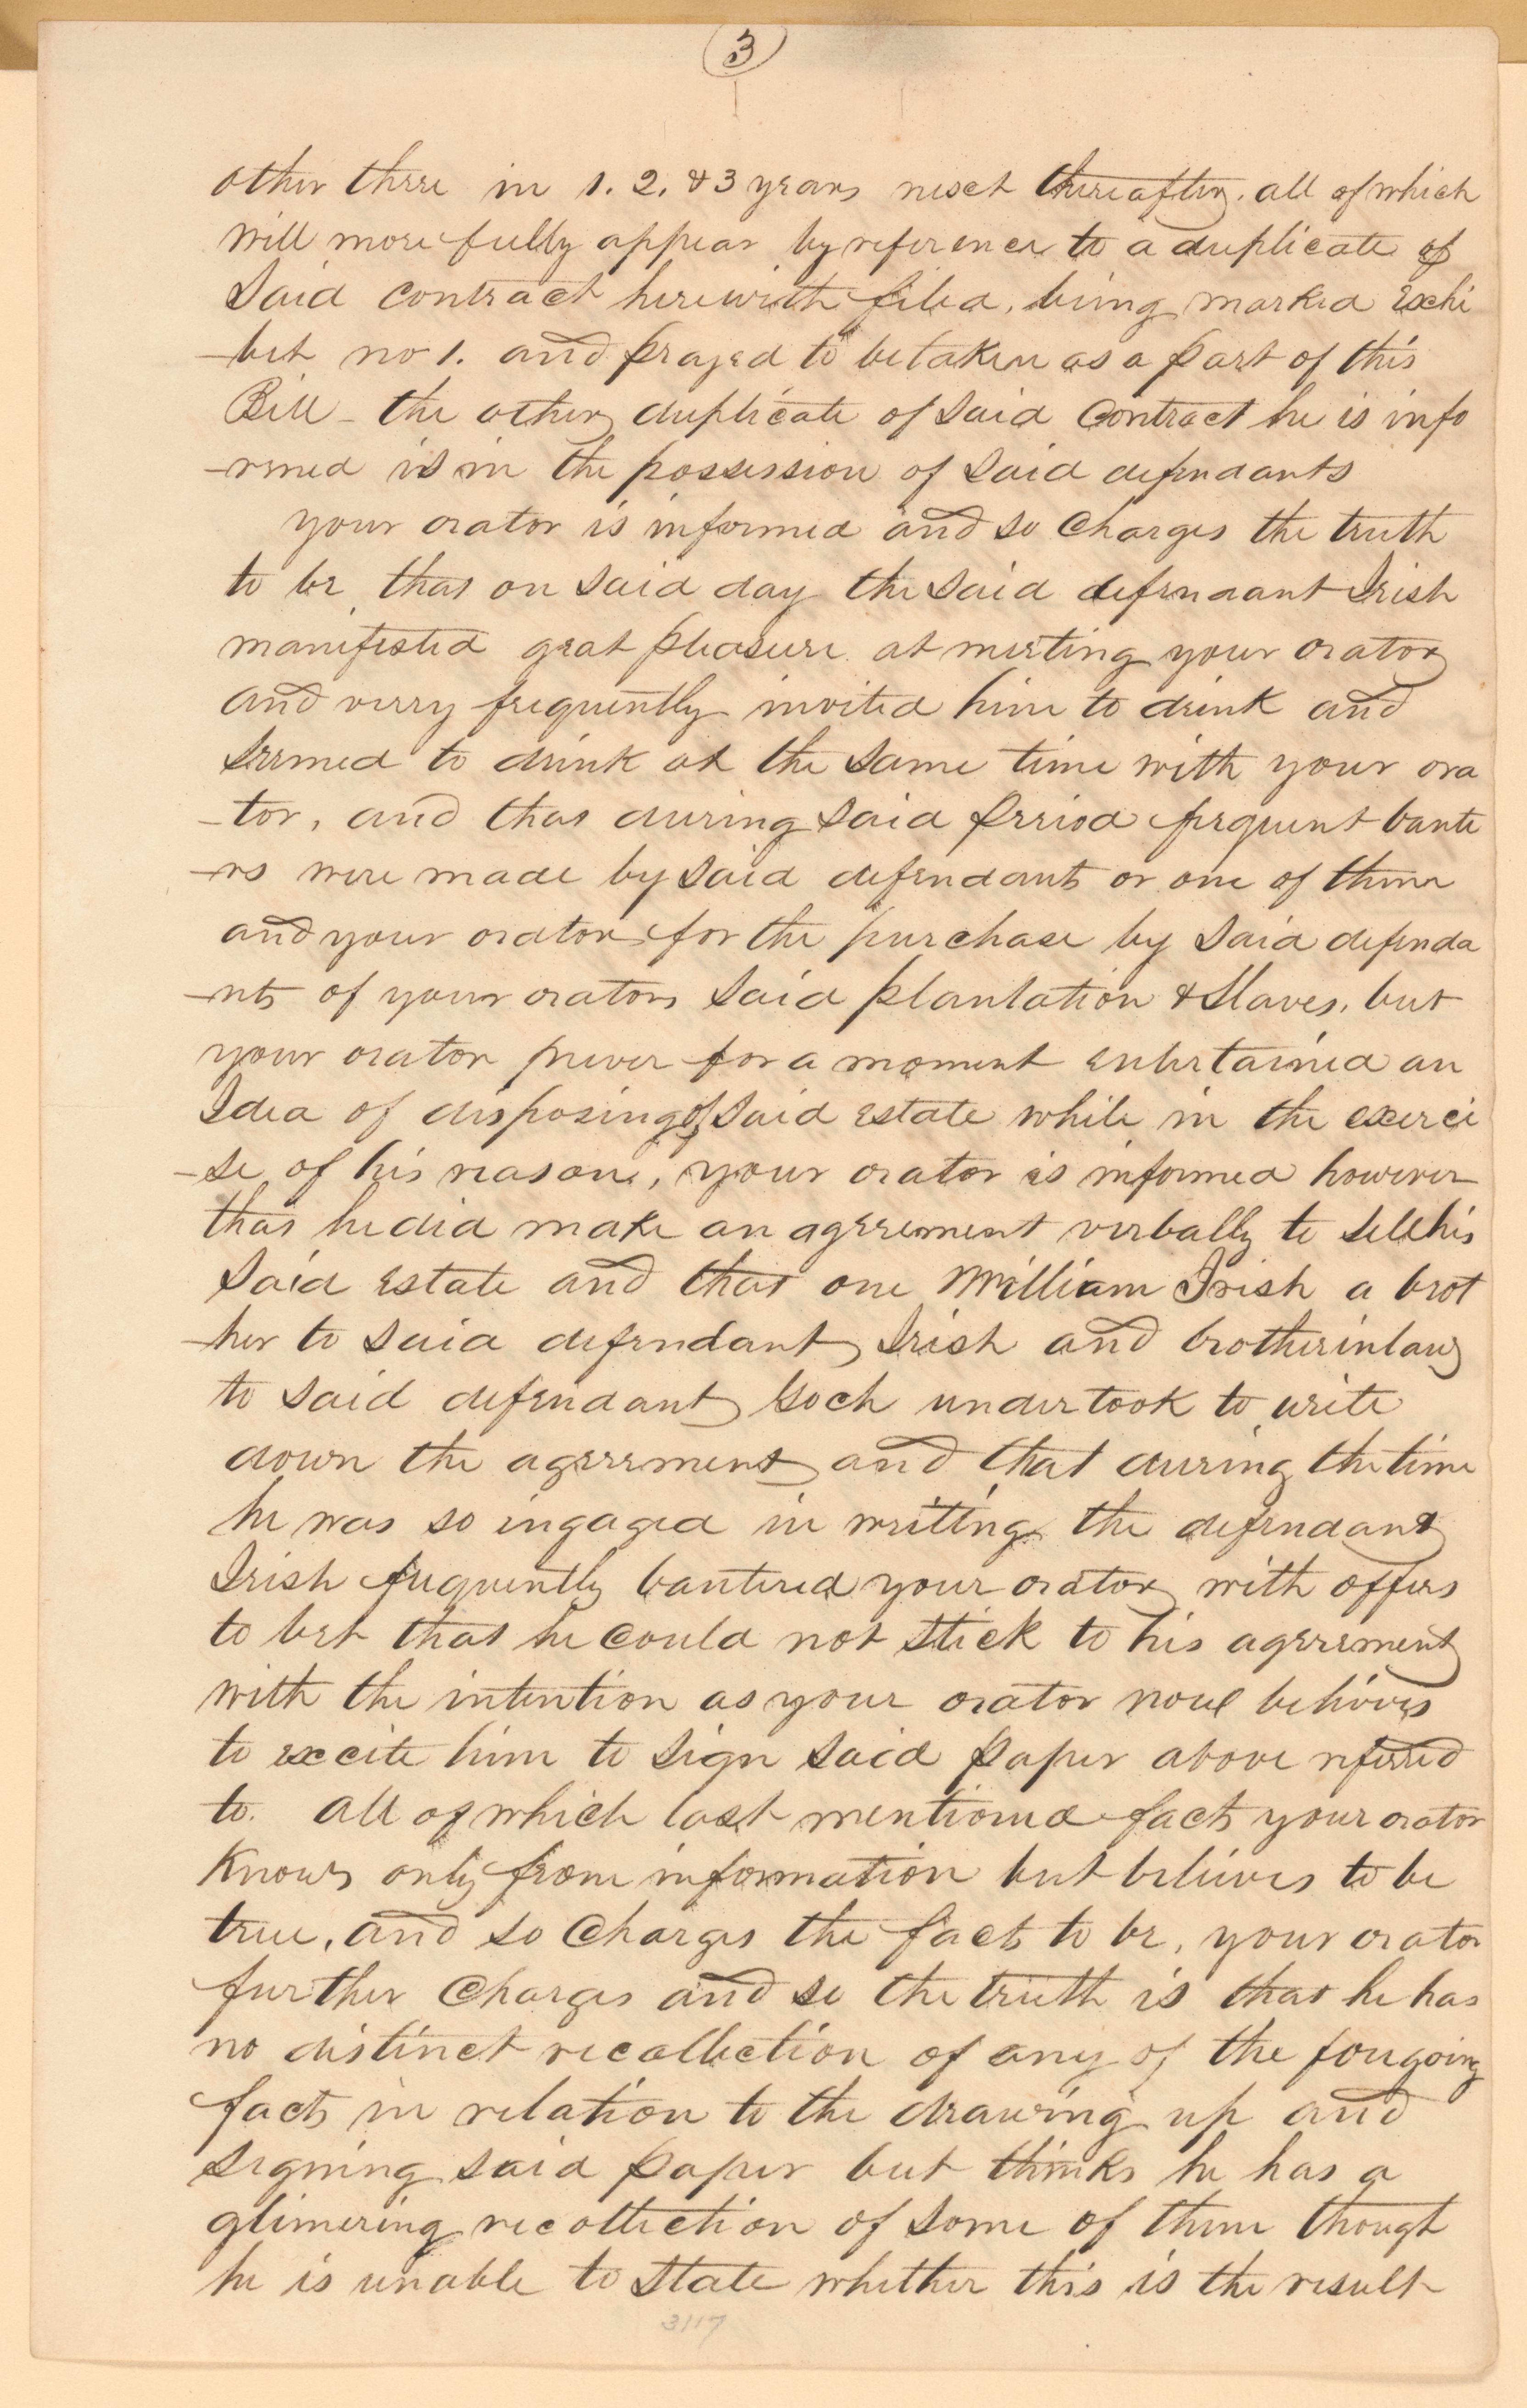 3
other three in 1. 2. & 3 years next thereafter. all of which
will more fully appear by reference to a duplicate of
Said Contract herewith filed, being marked Exhi
-bit no 1. and prayed to be taken as a part of this
Bill - the other duplicate of Said Contract he is info
-rmed is in the possession of Said defendants
your orator is informed and so Charges the truth
to be, that on Said day the Said defendant Irish
manifested great pleasure at meeting your orator
and verry frequently invited him to drink and
Seemed to drink at the Same time with your ora
-tor, and that during Said Period frequent bante
-rs were made by Said defendants or one of them
and your orator for the purchase by Said defenda
-nts of your orators Said Plantation & Slaves, but
your orator never for a moment entertained an
Idea of disposing of Said Estate while in the exerci
-se of his reason, your orator is informed however
that he did make an agreement verbally to Sell his
Said Estate and that one William Irish a brot
-her to Said defendant Irish and brotherinlaw
to Said defendant undertook to write
down the agreement and that during the time
he was so ingaged in writing the defendant
Irish frequently bantered your orator with offers
to bet that he Could not Stick to his agreement
with the intention as your orator now believes
to excite him to Sign Said Paper above referred
to. All of which last mentioned facts your orator
Knows only from information but believes to be
true, and so Charges the facts to be, your orator
further Charges and so the truth is that he has
no distinct recollection of any of the foregoing
facts in relation to the drawing up and
signing said Paper but thinks he has a
glimering recollection of Some of them though
he is unable to State whether this is the result
3117